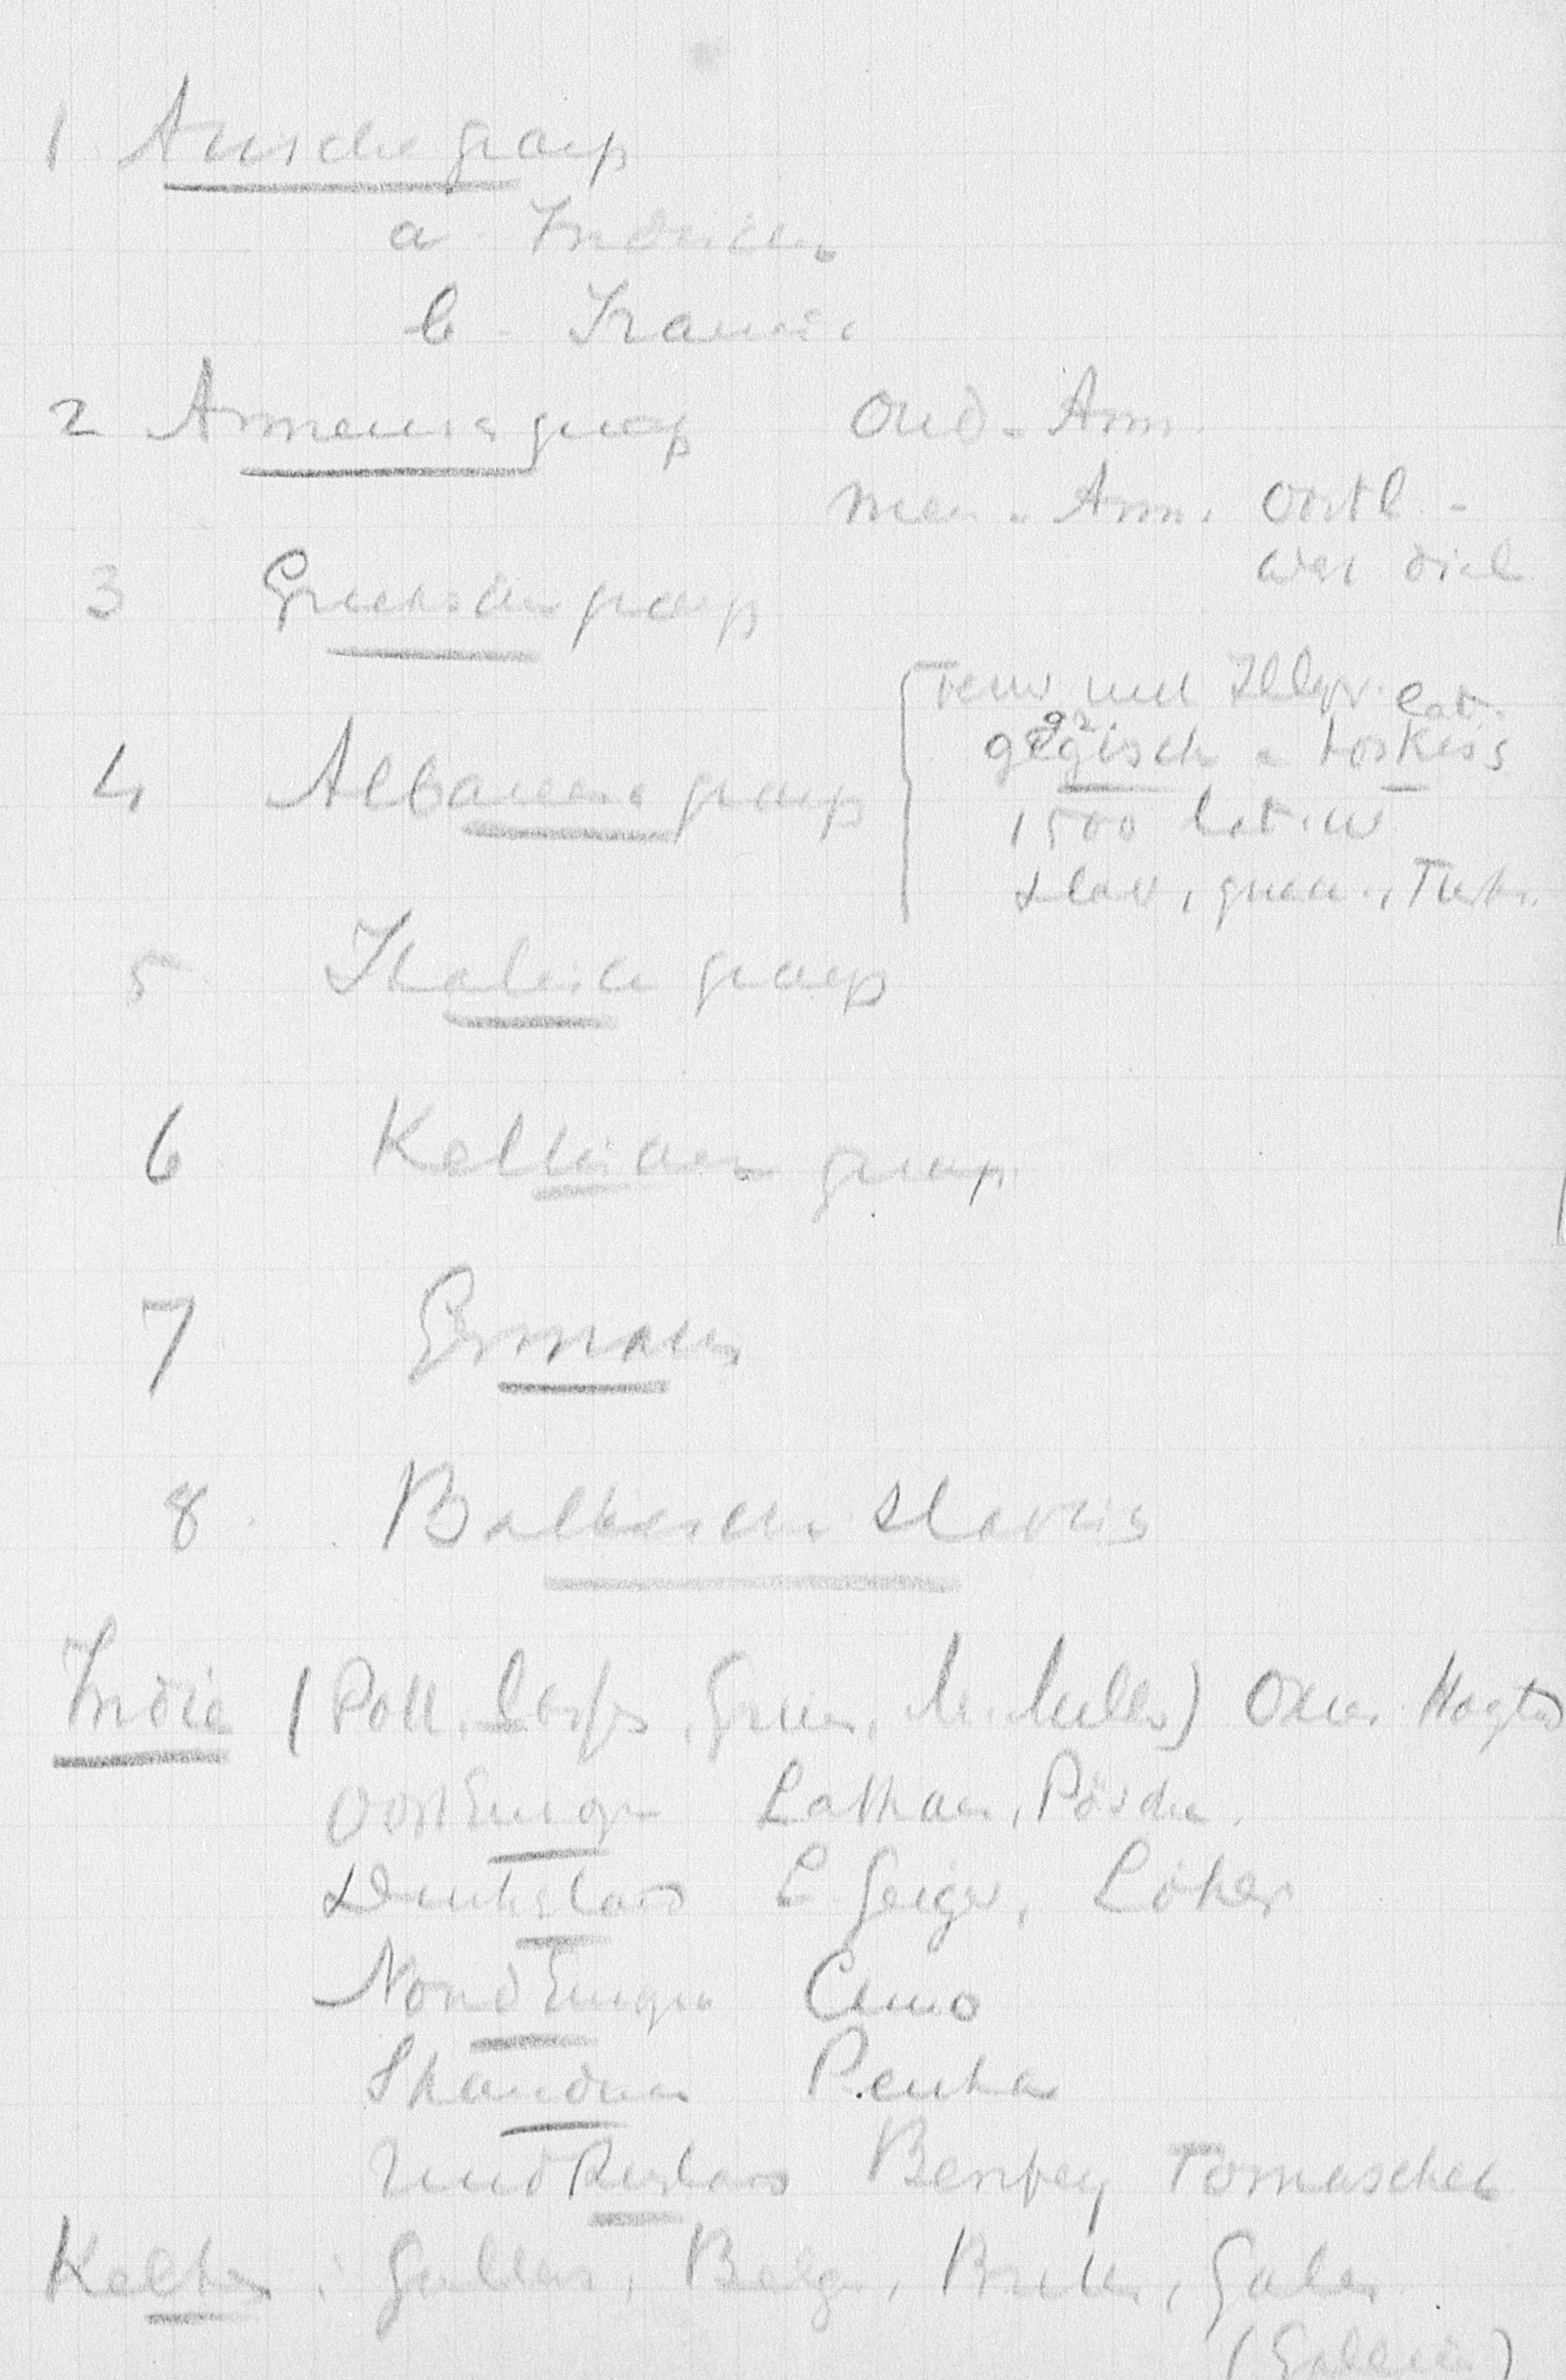 1 Arische groep
a - Indische
b - Iranis
2 Armeense groep Oud-Arm.
nieu-Arm. Oostl -
West dial
3 Grieksche groep
4 Albaneese groep
verw. met Illyr. Lat.
gegisch - toskiss
1500 lat. w
slav, griek., Turk.
5 Italische groep
6 Keltische groep
7 Germaans
8. Baltische Slavis
Indie (Pott, Grim, M. Muller)
Oost Europa Latham, Pösche.
Duitsland L. Geiger, Löher
Noord Europa Cuno
Skandina Penka
Zuid Rusland Benfey Tomaschek
Kelten : Galliers, Belgen, Britten, Galen